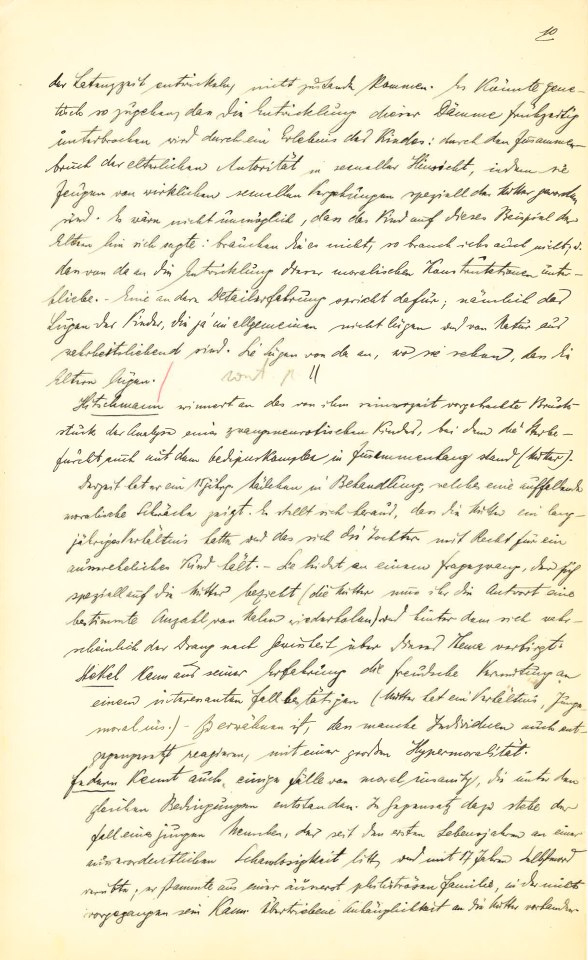 10
der Latenzzeit entwickeln, nicht zustande kommen. Es könnte gene-
tisch so zugehen, dass die Entwicklung dieser Dämme frühzeitig
unterbrochen wird durch ein Erlebnis des Kindes: durch den Zusammen-
bruch der elterlichen Autorität in sexueller Hinsicht, indem sie
Zeugen von wirklichen sexuellen Vergehungen speziell der Mutter geworden
sind. Es wäre nicht unmöglich, dass das Kind auf dieses Beispiel der
Eltern hin sich sagte: brauchen die es nicht, so brauch ichs auch nicht; u.
dass von da an die Entwicklung dieser moralischen Konstitutionen unter-
bliebe. - Eine andere Detailerfahrung spricht dafür; nämlich das
Lügen der Kinder, die ja im allgemeinen nicht lügen und von Natur aus
wahrheitsliebend sind. Sie lügen von da an, wo sie sehen, dass die
Eltern lügen.
Hitschmann erinnert an das von ihm seinerzeit vorgebrachte Bruch-
stück der Analyse eines zwangsneurotischen Kindes, bei dem die
auch mit dem Oedipuskomplex in Zusammenhang stand (Mutter).
Derzeit hat er ein 15jähr. Mädchen in Behandlung, welches eine auffallende
moralische Schwäche zeigt. Es stellt sich heraus, dass die Mutter ein lang-
jähriges Verhältnis hatte und dass sich die Tochter mit Recht für ein
aussereheliches Kind hält. - Sie leidet an einem Fragezwang, der sich
speziell auf die Mutter bezieht (die Mutter muss ihr die Antwort eine
bestimmte Anzahl von Malen wiederholen) und hinter dem sich wahr-
scheinlich der Drang nach Gewissheit über dieses Thema verbirgt.
Stekel kann aus seiner Erfahrung die Freudsche Vermutung an
einem interessanten Fall bestätigen (Mutter hat ein Verhältnis, Junge
moral ins.) - Zu erwähnen ist, dass manche Individuen auch ent-
gegengesetzt reagieren, mit einer grossen Hypermoralität.
Federn kennt auch einige Fälle von moral insanity, die unter den
gleichen Bedingungen entstanden. Im Gegensatz dazu stehe der
Fall eines jungen Menschen, der seit den ersten Lebensjahren an einer
ausserordentlichen Schamlosigkeit litt und mit 17 Jahren Selbstmord
verübte; er stammte aus einer äusserst philiströsen Familie, in der nichts
vorgegangen sein kann. Übertriebene Anhänglichkeit an die Mutter vorhanden